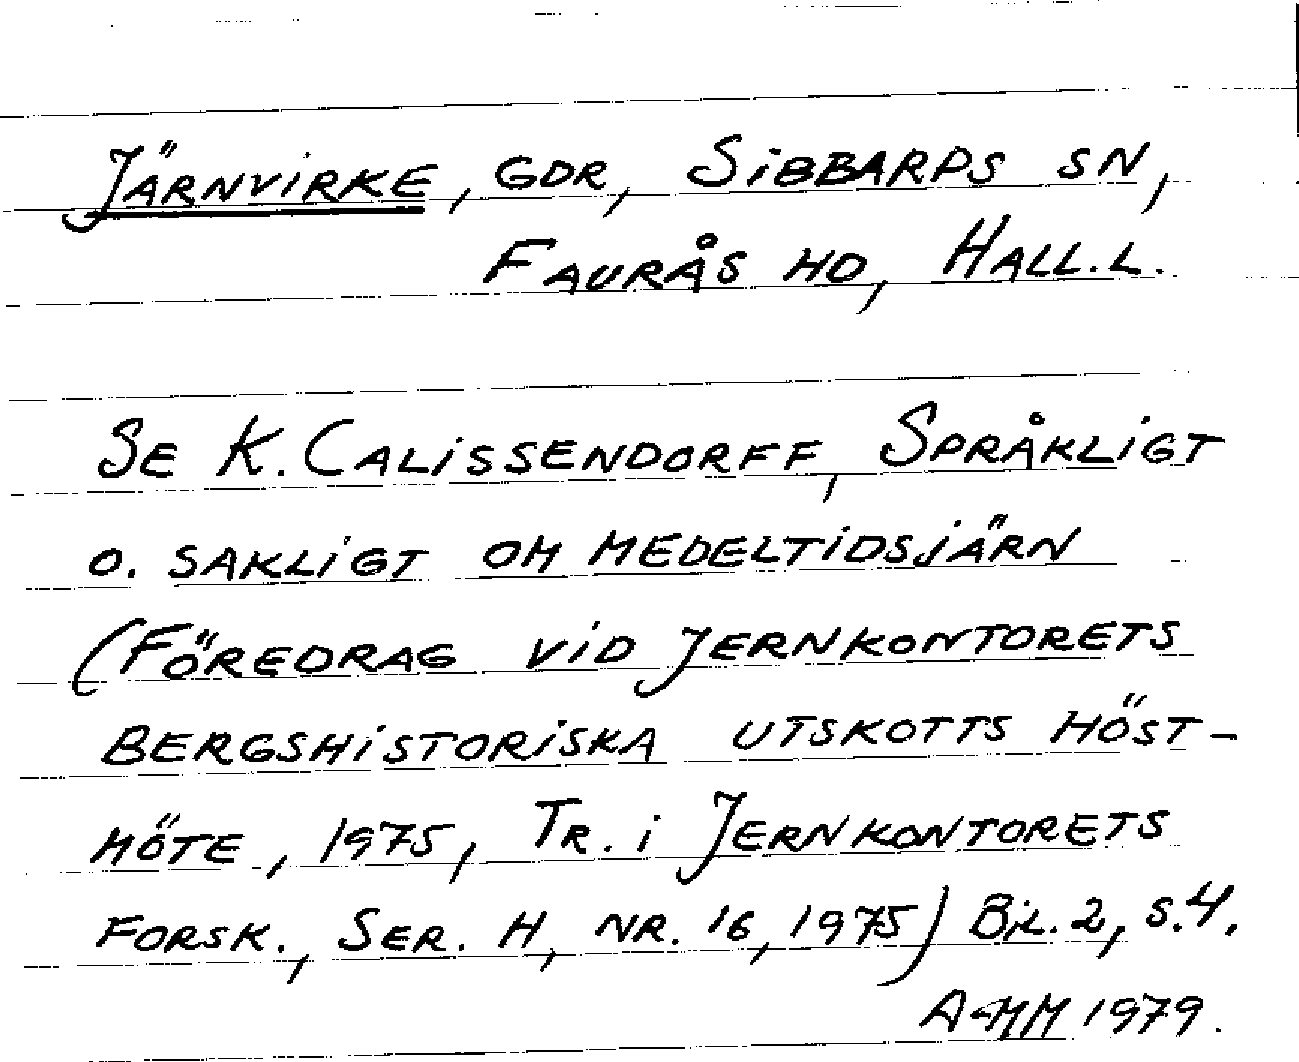 Järnvirke, gdr, Sibbarps sn,
Faurås hd, Hall.l.
Se K. Calissendorff, Språkligt
o. sakligt om medeltidsjärn
(Föredrag vid Jernkontorets
bergshistoriska utskotts höst-
möte, 1975, Tr. i Jernkontorets
forsk., Ser. H, nr. 16, 1975) Bil. 2, s. 4.
A-MM 1979.